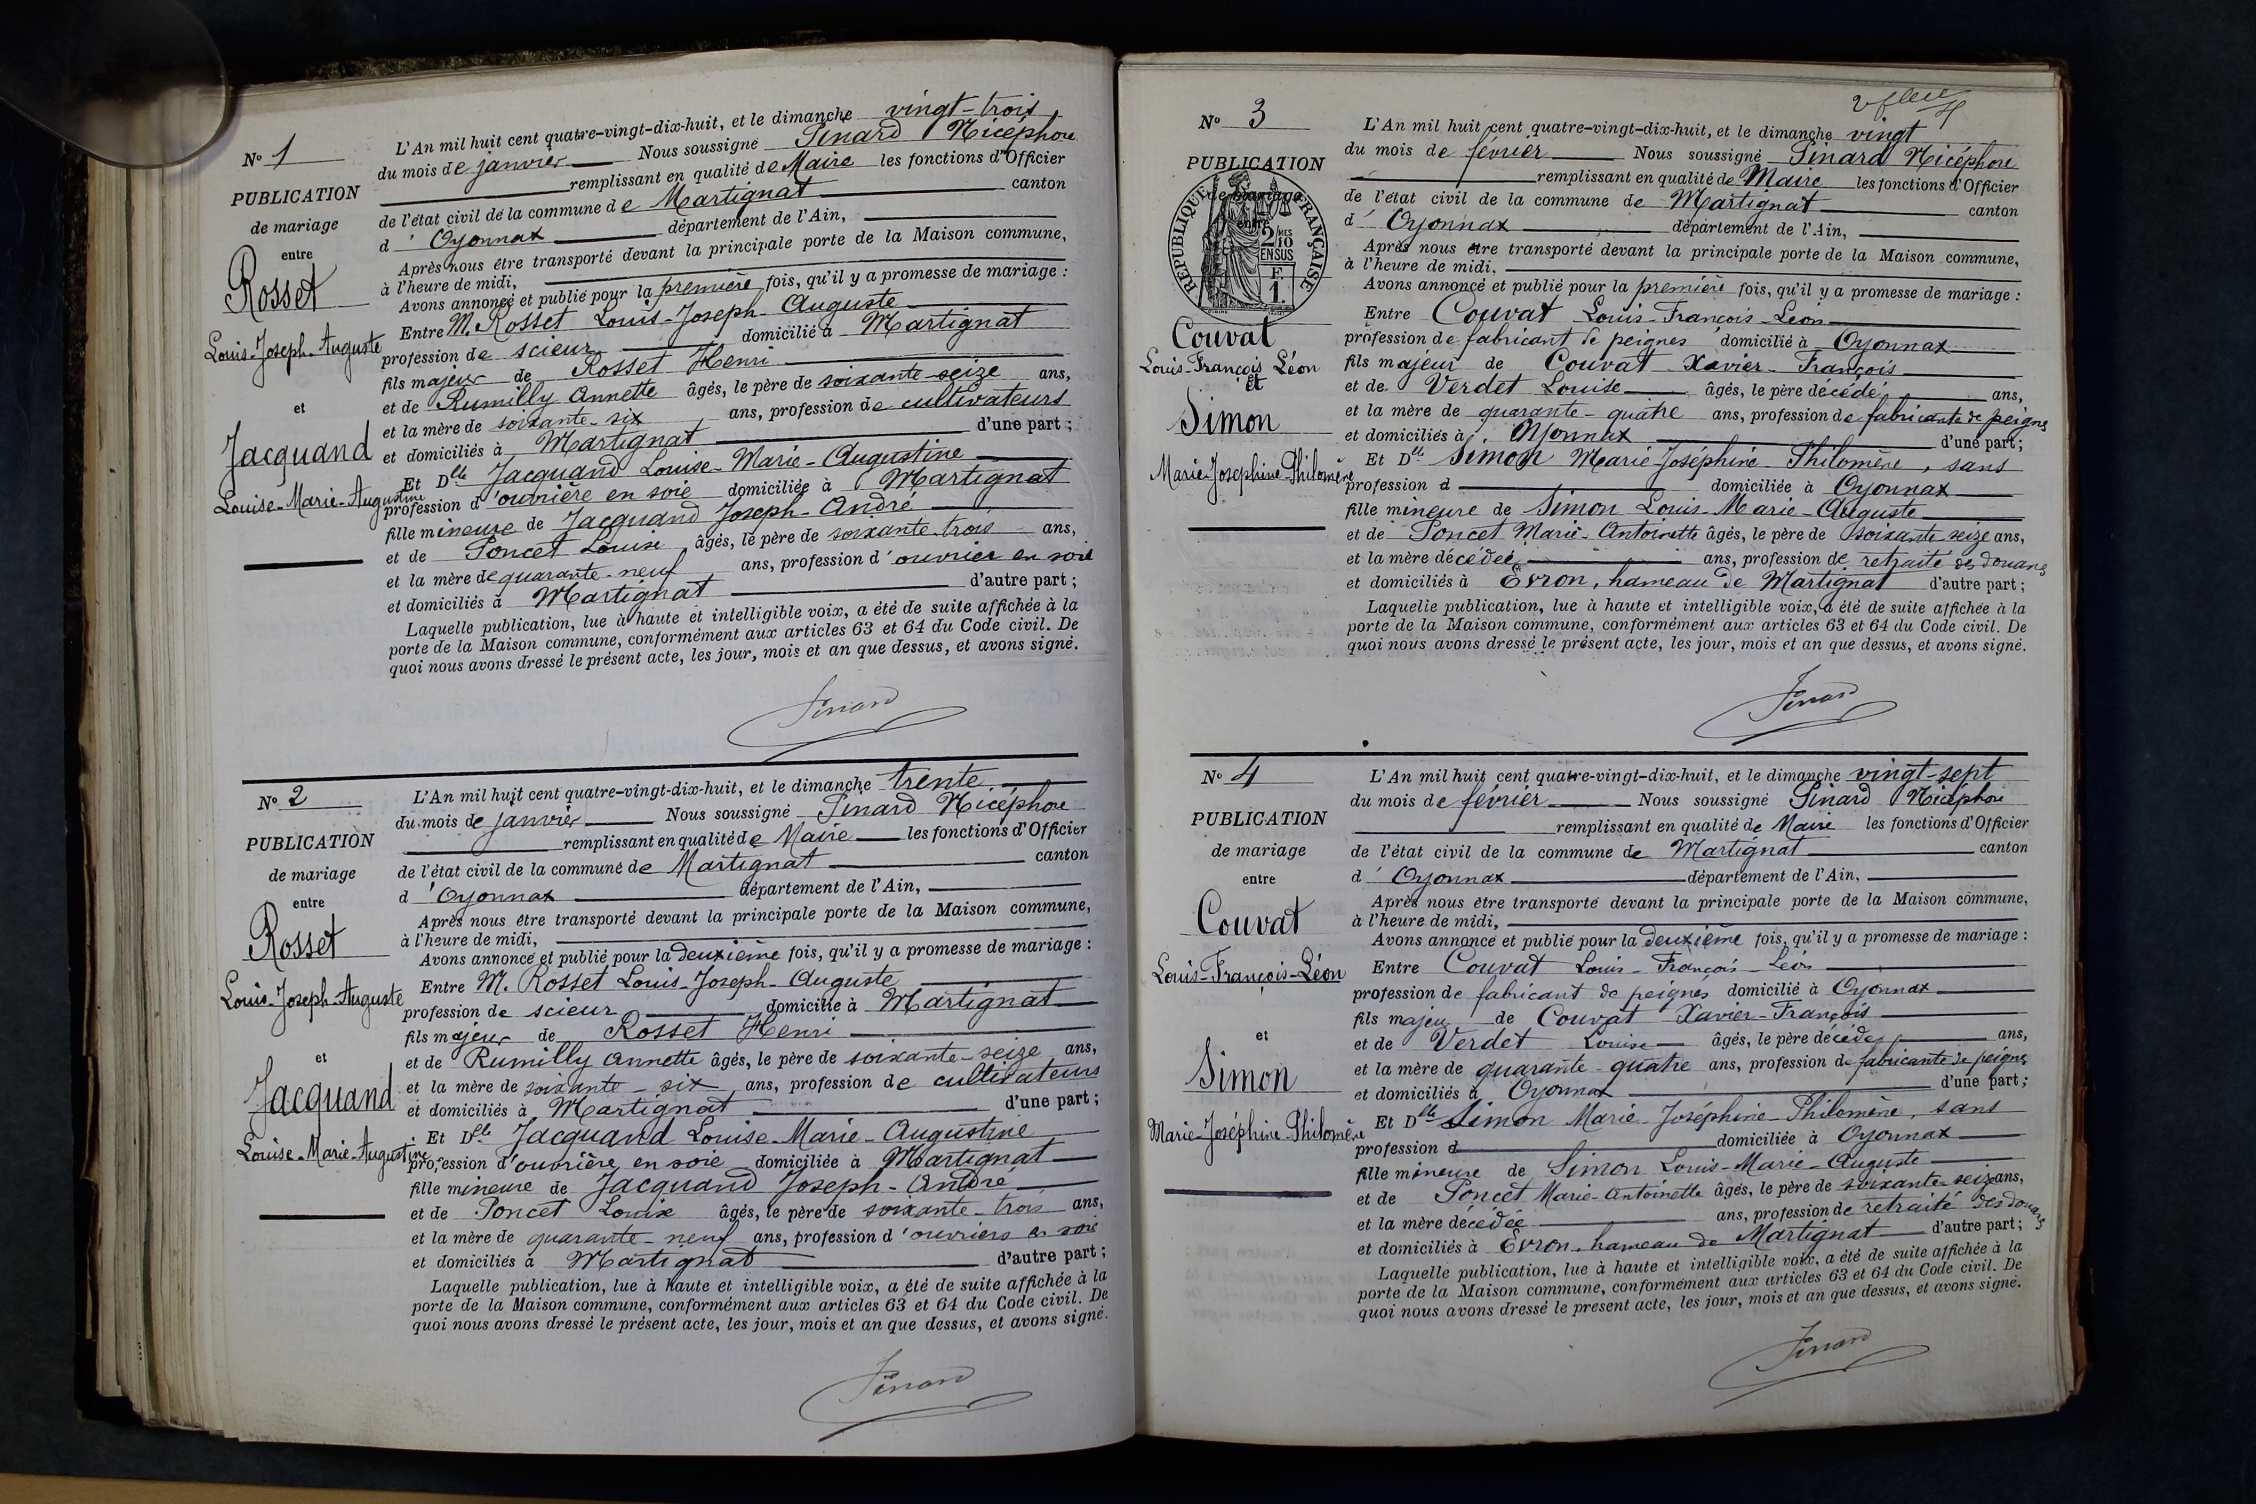 N° 1
PUBLICATION
de mariage
entre
Rosset
Louis-Joseph-Auguste
et
Jacquand
Louise-Marie-Augustine
L'An mil huit cent quatre-vingt-dix-huit, et le dimanche vingt-trois
du mois de janvier Nous soussigné Pinard Nicéphore
remplissant en qualité de Maire les fonctions d'Officier
de l'état civil de la commune de Martignat canton
d'Oyonnax département de l'Ain,
Après nous être transporté devant la principale porte de la Maison commune,
à l'heure de midi,
Avons annoncé et publié pour la première fois, qu'il y a promesse de mariage :
Entre M. Rosset Louis-Joseph-Auguste
profession de scieur domicilié à Martignat
fils majeur de Rosset Henri
et de Rumilly Annette âgés, le père de soixante-seize ans,
et la mère de soixante-six ans, profession de cultivateurs
et domiciliés à Martignat d'une part ;
Et Dlle Jacquand Louise-Marie-Augustine
profession d'ouvrière en soie domiciliée à Martignat
fille mineure de Jacquand Joseph-André
et de Poncet Louise âgés, le père de soixante-trois ans,
et la mère de quarante-neuf ans, profession d'ouvrier en soie
et domiciliés à Martignat d'autre part ;
Laquelle publication, lue à haute et intelligible voix, a été de suite affichée à la
porte de la Maison commune, conformément aux articles 63 et 64 du Code civil. De
quoi nous avons dressé le présent acte, les jour, mois et an que dessus, et avons signé.
Pinard
N° 2
PUBLICATION
de mariage
entre
Rosset
Louis-Joseph-Auguste
et
Jacquand
Louise-Marie-Augustine
L'An mil huit cent quatre-vingt-dix-huit, et le dimanche trente
du mois de janvier Nous soussigné Pinard Nicéphore
remplissant en qualité de Maire les fonctions d'Officier
de l'état civil de la commune de Martignat canton
d'Oyonnax département de l'Ain,
Après nous être transporté devant la principale porte de la Maison commune,
à l'heure de midi,
Avons annoncé et publié pour la deuxième fois, qu'il y a promesse de mariage :
Entre M. Rosset Louis-Joseph-Auguste
profession de scieur domicilié à Martignat
fils majeur de Rosset Henri
et de Rumilly Annette âgés, le père de soixante-seize ans,
et la mère de soixante-six ans, profession de cultivateurs
et domiciliés à Martignat d'une part ;
Et Dlle Jacquand Louise-Marie-Augustine
profession d'ouvrière en soie domiciliée à Martignat
fille mineure de Jacquand Joseph-André
et de Poncet Louise âgés, le père de soixante-trois ans,
et la mère de quarante-neuf ans, profession d'ouvriers en soie
et domiciliés à Martignat d'autre part ;
Laquelle publication, lue à haute et intelligible voix, a été de suite affichée à la
porte de la Maison commune, conformément aux articles 63 et 64 du Code civil. De
quoi nous avons dressé le présent acte, les jour, mois et an que dessus, et avons signé.
Pinard
N° 3
PUBLICATION
de mariage
entre
RÉPUBLIQUE FRANÇAISE
2/10 MES
EN SUS
1 F.
Couvat
Louis-François Léon
et
Simon
Marie-Joséphine-Philomène
L'An mil huit cent quatre-vingt-dix-huit, et le dimanche vingt
du mois de février Nous soussigné Pinard Nicéphore
remplissant en qualité de Maire les fonctions d'Officier
de l'état civil de la commune de Martignat canton
d'Oyonnax département de l'Ain,
Après nous être transporté devant la principale porte de la Maison commune,
à l'heure de midi,
Avons annoncé et publié pour la première fois, qu'il y a promesse de mariage :
Entre Couvat Louis-François-Léon
profession de fabricant de peignes domicilié à Oyonnax
fils majeur de Couvat Xavier-François
et de Verdet Louise âgés, le père décédé ans,
et la mère de quarante-quatre ans, profession de fabricante de peignes
et domiciliés à Oyonnax d'une part ;
Et Dlle Simon Marie-Joséphine-Philomène, sans
profession d domiciliée à Oyonnax
fille mineure de Simon Louis-Marie-Auguste
et de Poncet Marie-Antoinette âgés, le père de soixante-seize ans,
et la mère décédée ans, profession de retraité des douanes
et domiciliés à Evron, hameau de Martignat d'autre part ;
Laquelle publication, lue à haute et intelligible voix, a été de suite affichée à la
porte de la Maison commune, conformément aux articles 63 et 64 du Code civil. De
quoi nous avons dressé le présent acte, les jour, mois et an que dessus, et avons signé.
Pinard
N° 4
PUBLICATION
de mariage
entre
Couvat
Louis-François-Léon
et
Simon
Marie-Joséphine-Philomène
L'An mil huit cent quatre-vingt-dix-huit, et le dimanche vingt-sept
du mois de février Nous soussigné Pinard Nicéphore
remplissant en qualité de Maire les fonctions d'Officier
de l'état civil de la commune de Martignat canton
d'Oyonnax département de l'Ain,
Après nous être transporté devant la principale porte de la Maison commune,
à l'heure de midi,
Avons annoncé et publié pour la deuxième fois, qu'il y a promesse de mariage :
Entre Couvat Louis-François-Léon
profession de fabricant de peignes domicilié à Oyonnax
fils majeur de Couvat Xavier-François
et de Verdet Louise âgés, le père décédé ans,
et la mère de quarante-quatre ans, profession de fabricante de peignes
et domiciliés à Oyonnax d'une part ;
Et Dlle Simon Marie-Joséphine-Philomène, sans
profession d domiciliée à Oyonnax
fille mineure de Simon Louis-Marie-Auguste
et de Poncet Marie-Antoinette âgés, le père de soixante-seize ans,
et la mère décédée ans, profession de retraité des douanes
et domiciliés à Evron, hameau de Martignat d'autre part ;
Laquelle publication, lue à haute et intelligible voix, a été de suite affichée à la
porte de la Maison commune, conformément aux articles 63 et 64 du Code civil. De
quoi nous avons dressé le présent acte, les jour, mois et an que dessus, et avons signé.
Pinard